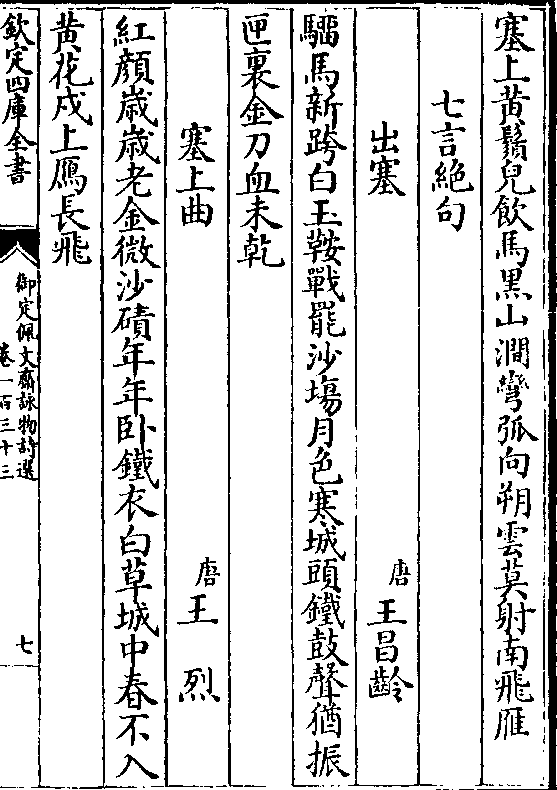 塞上黄鬚兒飲馬黒山澗彎弧向朔雲莫射南飛雁
七言絶句
出塞　唐王昌齡
騮馬新跨白玉鞍戰罷沙塲月色寒城頭鐵鼓聲猶振
匣裏金刀血未乾
塞上曲　唐王烈
紅顔歲歲老金微沙磧年年卧鐵衣白草城中春不入
黄花戍上鴈長飛
欽定四庫全書
御定佩文齋詠物詩選
卷一百三十三
七